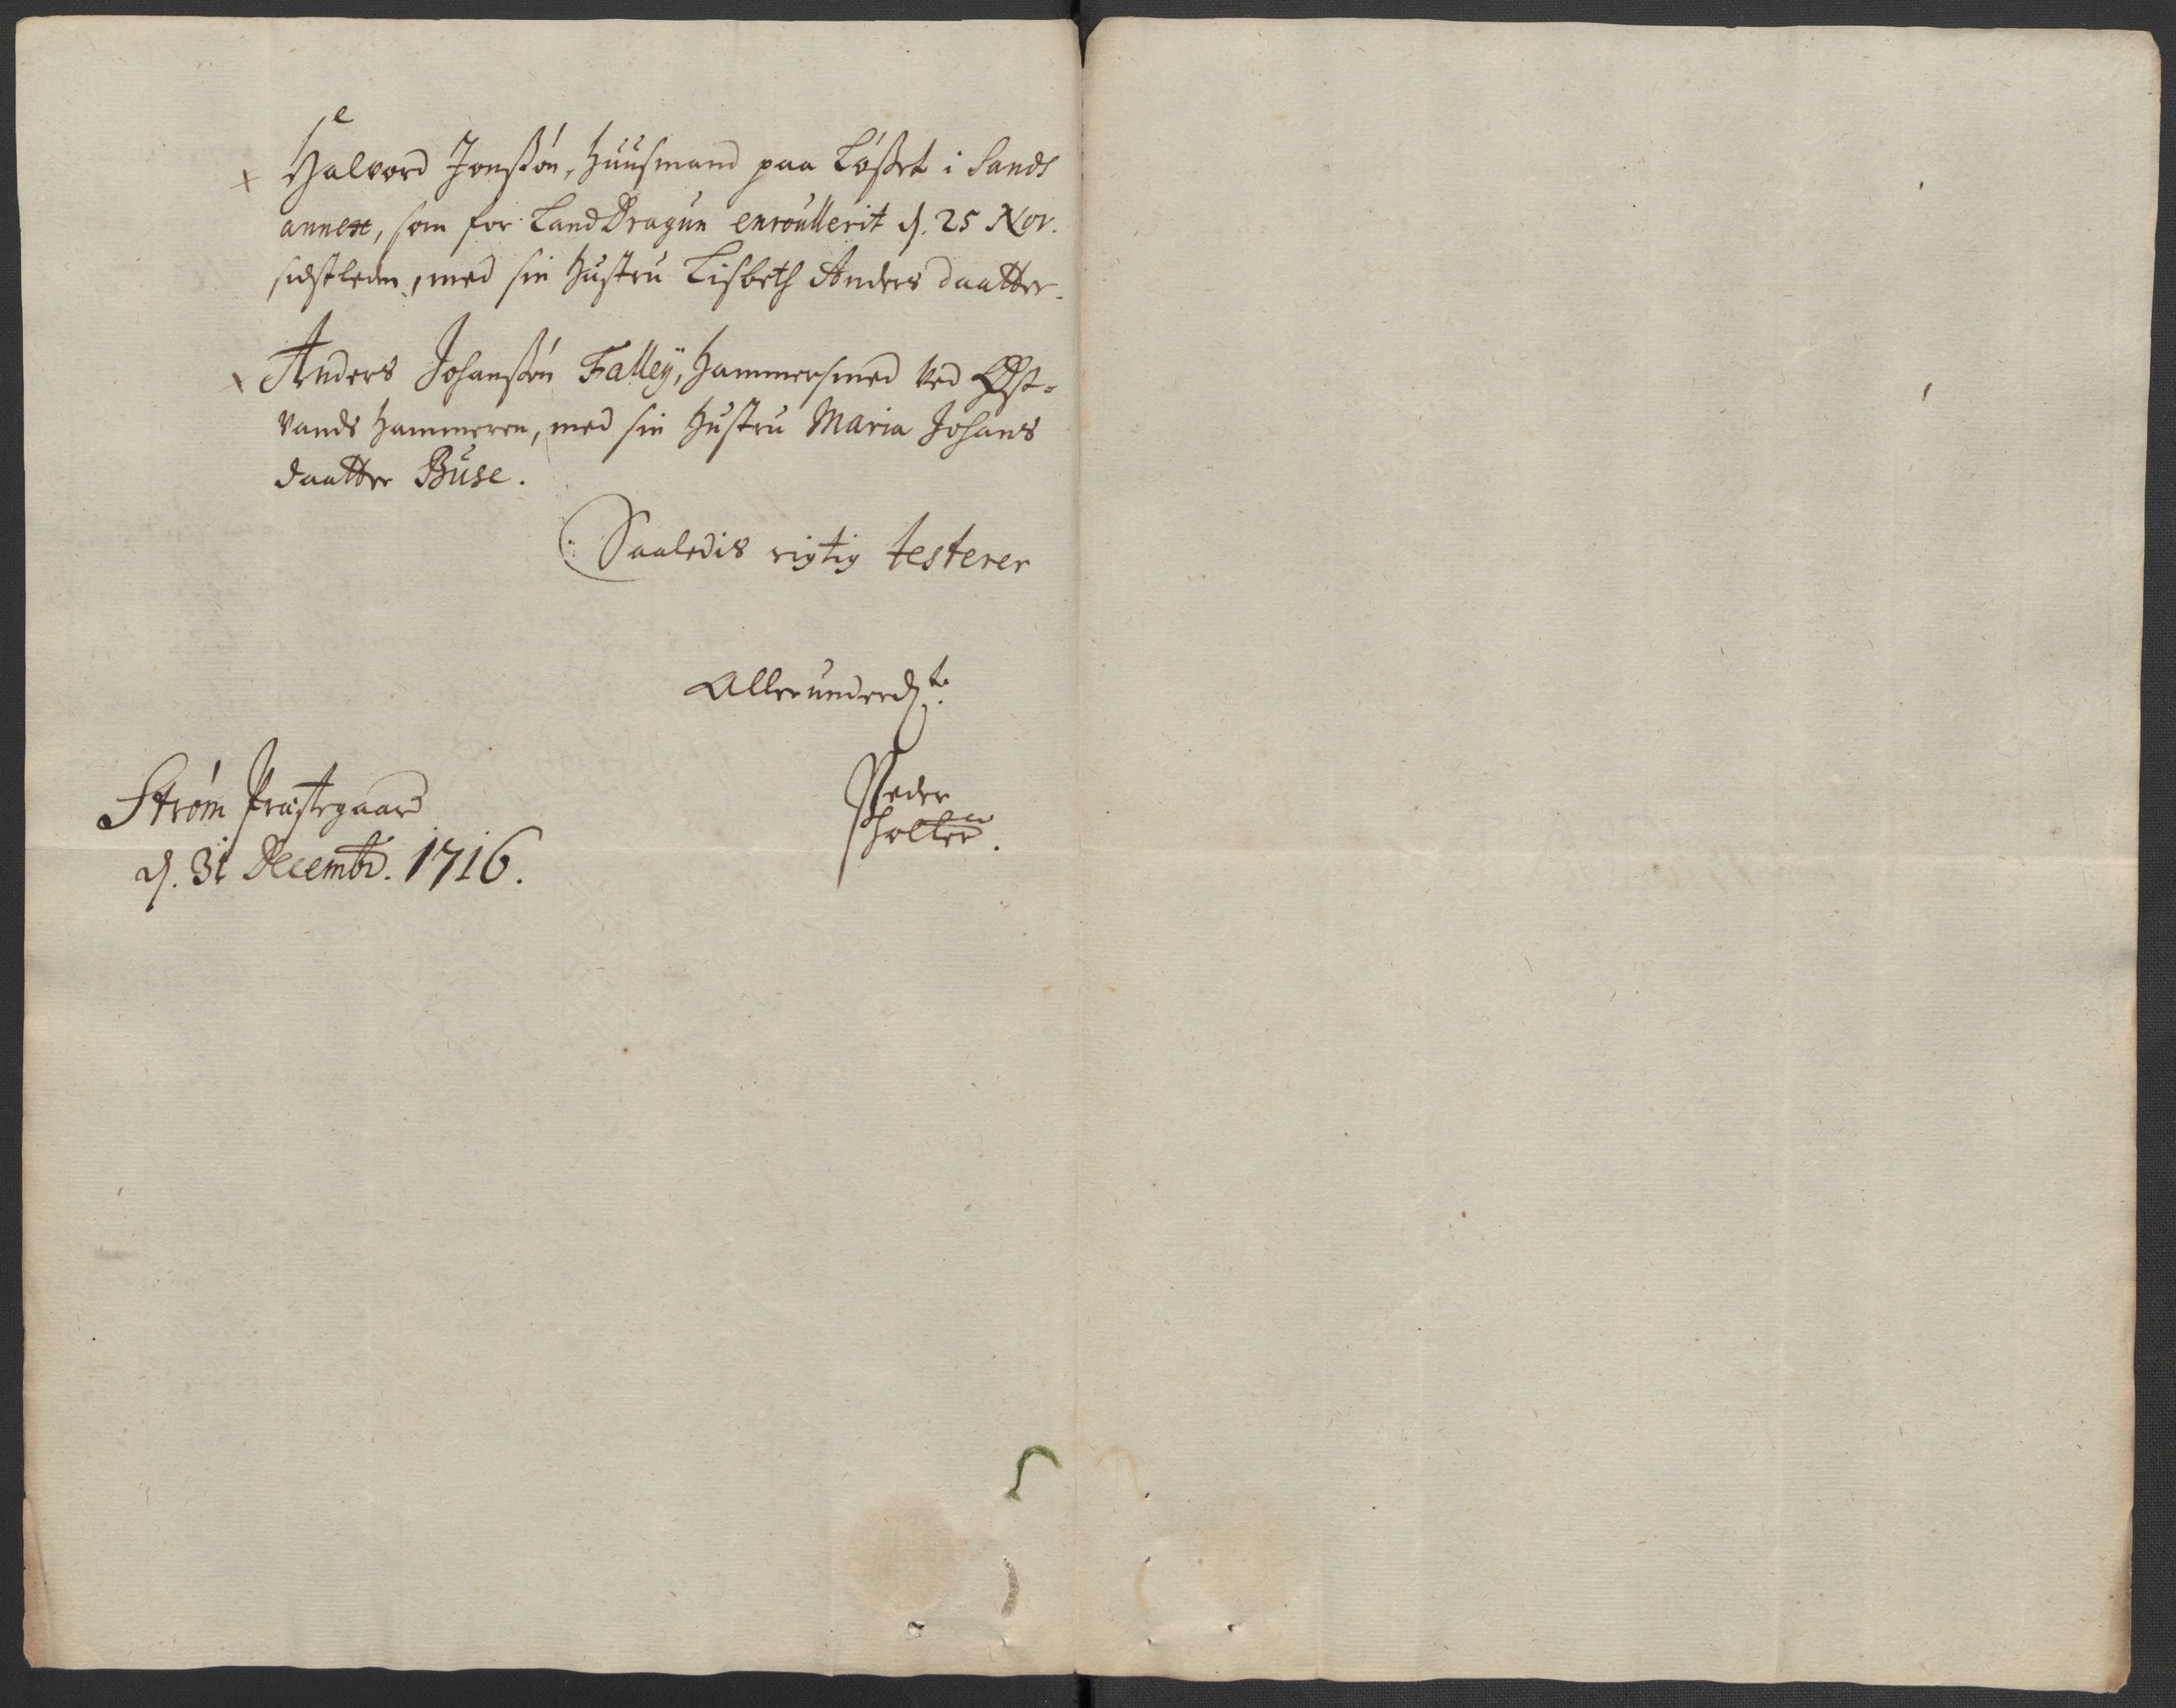 x Halvord Jonssøn, Huusmand paa Løsset i Sands
annex, som for Land Dragun enroullerit d. 25 Nov.
sidstleden, med sin Hustru Lisbeth Anders daatter.
x Anders Johanssøn Falleÿ, Hammersmed ved Øst-
vands Hammeren, med sin Hustru Maria Johans
daatter Buse.
Saaledis rigtig testerer
Allerunderd.st
Peder
Holter.
Strøm Præstegaard
d. 31 Decembr. 1716.